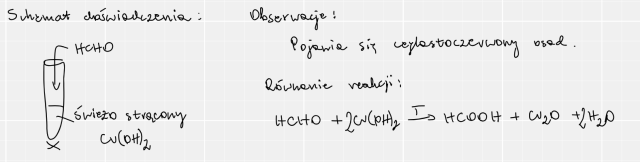 Schemat doświadczenia:
HCHO
świeżo strącony
Cu(OH)₂
Obserwacje:
Pojawia się ceglastoczerwony osad.
Równanie reakcji:
HCHO + 2Cu(OH)₂ T→ HCOOH + Cu₂O + 2H₂O